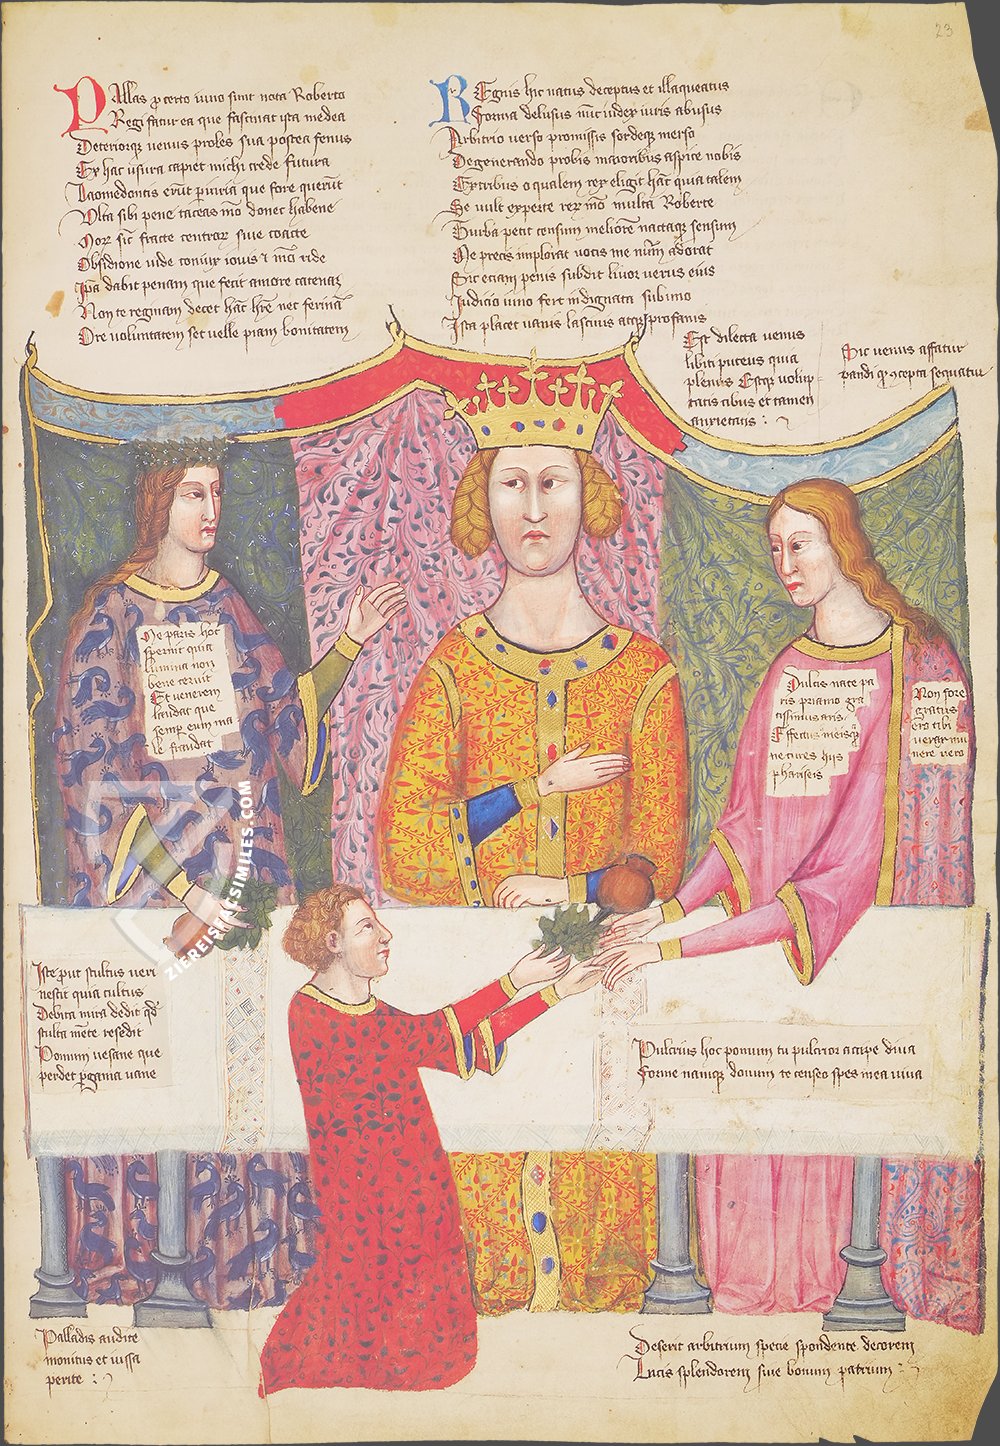 23
Pallas certo sunt nota Roberto
Regi fatur ea que fascinat ista medea
Deteriorque venus proles sua postea fenus
Ex hac usura capiet michi crede futura
Laomedontis erunt que fore querunt
Ulta sibi pene taceas donec habene
fracte sive coacte
Obsidione vide coniux iovis ride
dabit penam que fecit amore catenas
Non te reginam decet nec
Ore voluntatem set velle piam bonitatem
Regius hic natus deceptus et illaqueatus
Forma delusus iudex iuris abusus
Arbitrio verso promissis sordeque merso
Degenerando probis maioribus aspice nobis
Ex tribus o qualem rex eligit hanc quia talem
Se vult experte multa Roberte
Turba petit censum meliorem nactaque sensum
Me precis implorat votis me adorat
Sic eciam penis subdit livor verus eius
Iudicio iuno fert indignata sub imo
Ista placet vanis lascivis atque profanis
Est dilecta venus
libiti puteus quia
plenus Estque volup
tatis cibus et tamen
anxietatis :
Sic venus affatur
concepta sequatur
Me paris hoc
spernit quia
lumina non
bene cernit
Et venerem
laudat que
semper eum ma
le fraudat
Dulcis nate pa
ris priamo gra
tissimus
Effectus meisque
ne cures hiis
phariseis
Non fore
gratus
ero tibi
verax mu
nere vero
Iste put stultus
nescit quia cultus
Debita mira dedit
stulta mente resedit
Pomum vesane que
perdet pergama vane
Pulcrius hoc pomum tu pulcrior accipe diva
Forme namque donum te censeo spes mea viva
Palladis audite
monitus et iussa
perite :
Deserit arbitrium specie spondente decorem
Lucis splendorem sive bonum patrium :
ZIEREIS FACSIMILES.COM